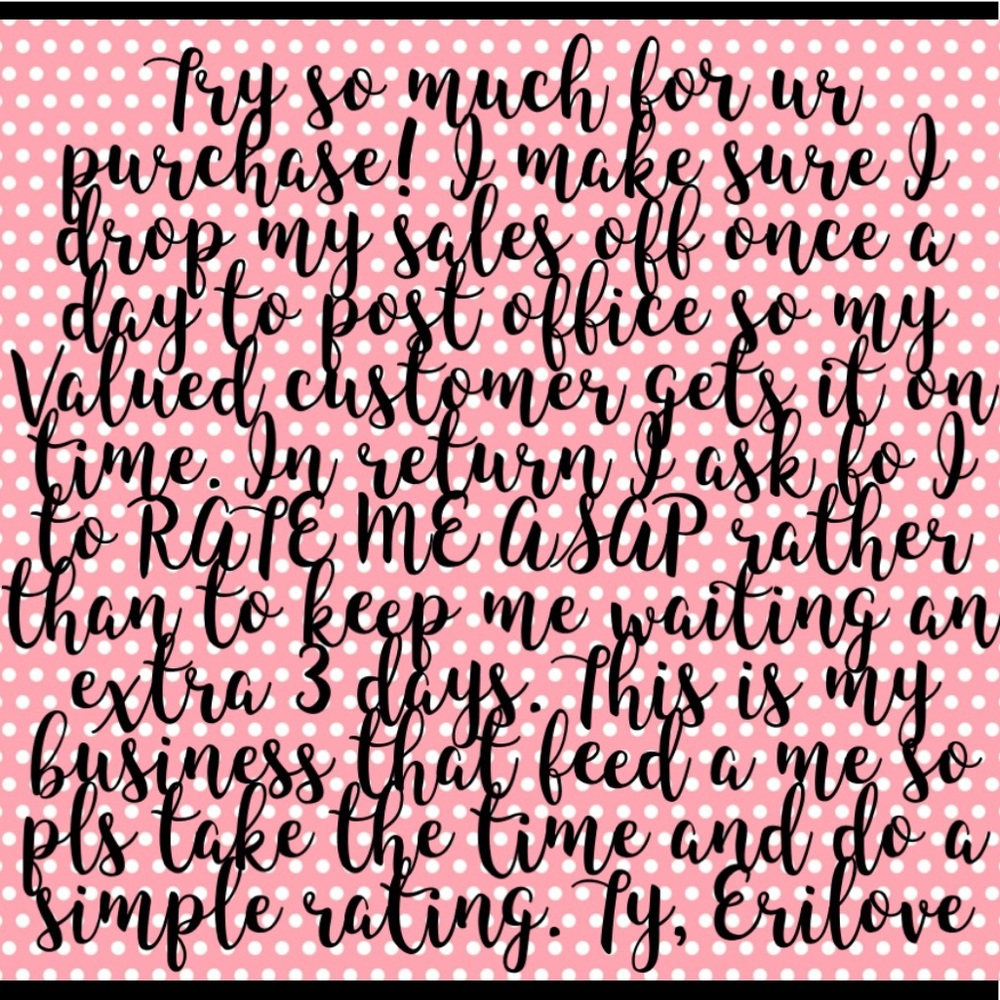 Try so much for ur
purchase! I make sure I
drop my sales off once a
day to post office so my
Valued customer gets it on
time. In return I ask fo I
to RATE ME ASAP rather
than to keep me waiting an
extra 3 days. This is my
business that feed a me so
pls take the time and do a
simple rating. Ty, Erilove